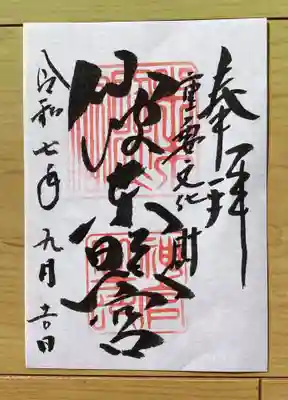 奉拝
重要文化財
仙波東照宮
令和七年九月 日